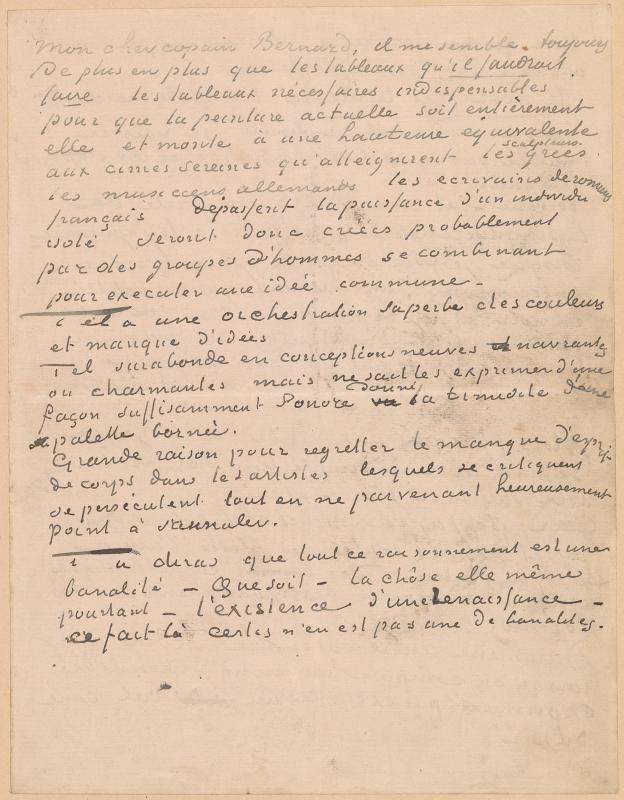 Mon cher copain Bernard, il me semble toujours
de plus en plus que les tableaux qu'il faudrait
faire les tableaux nécessaires indispensables
pour que la peinture actuelle soit entièrement
elle et monte à une hauteure équivalente
aux cimes sereines qu'atteignirent les sculpteurs Grecs
les musiciens allemands les ecrivains de romans
français dépassent la puissance d'un individu
isolé seront donc créés probablement
par des groupes d'hommes se combinant
pour executer une ideé commune –
Tel a une orchestration superbe des couleurs
et manque d'idées
Tel surabonde en conceptions neuves navrantes
ou charmantes mais ne sait les exprimer d'une
façon suffisamment sonore donné la timidité d'une
palette bornée.
Grande raison pour regretter le manque d'esprit
de corps dans les artistes lesquels se critiquent
se persécutent tout en ne parvenant heureusement
point à s'annuler.
Tu diras que tout ce raisonnement est une
banalité – Que soit – la chôse elle même
pourtant – l'éxistence d'une Renaissance –
ce fait là certes n'en est pas une de banalités.